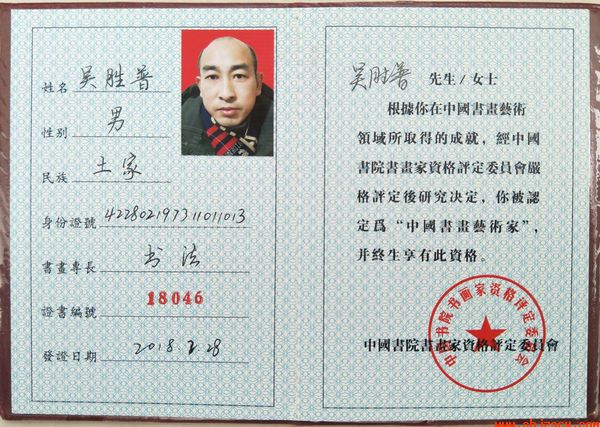 姓名 吴胜普
性别 男
民族 土家
身份證號 422802197311011013
書畫專長 书法
證書編號 18046
發證日期 2018.2.28
吴胜普 先生/女士
根據你在中國書畫藝術
領域所取得的成就，經中國
書院書畫家資格評定委員會嚴
格評定後研究决定，你被認
定爲“中國書畫藝術家”，
并終生享有此資格。
中国书院书画家资格评定委员会
中國書院書畫家資格評定委員會